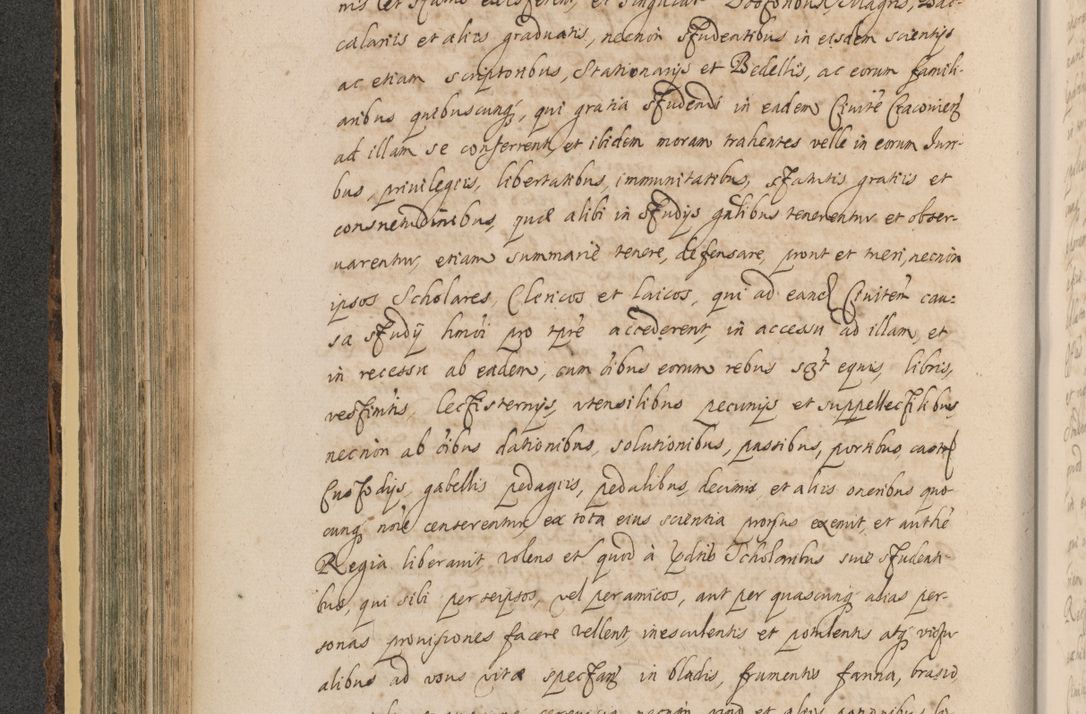 calariis et aliis graduatis, necnon studentibus in eisdem scientijs
ac etiam scriptoribus, Stationarijs et Bedellis, ac eorum famili-
aribus quibuscunq, qui gratia studendi in eadem Ciuite Cracovien
ad illam se conferrent, et ibidem moram trahentes velle in eorum Juri-
bus, privilegiis, libertatibus, immunitatibus, statutis gratiis et
consuetudinibus, quæ alibi in studijs gãlibus tenerentur et obser-
uarentur, etiam summarie tenere, defensare, prout et tueri, necnon
ipsos Scholares, Clericos et laicos, qui ad eand Ciuitem cau:
sa studij hmõi pro tpre accederent, in accessu ad illam, et
in recessu ab eadem, cum õibus eorum rebus sczt equis, libris,
vestimtis, lectisternijs, vtensilibus pecunijs et suppellectilibus
necnon ab õibus dationibus, solutionibus, passibus, portibus,
Custodijs, gabellis pedagiis, pedalibus, decimis, et aliis oneribus quo
cunq noïe censerentur, ex tota eius scientia prorsus exemit, et authe
Regia liberauit volens et quod à Scholaribus siue studenti-
bus, qui sibi per seipsos, vel per amicos, aut per quascunq alias per-
sonas provisiones facere vellent, in esculentis et potulentis atq victu
alibus ad vsus vitæ spectan in bladis, frumentis farina, brasio